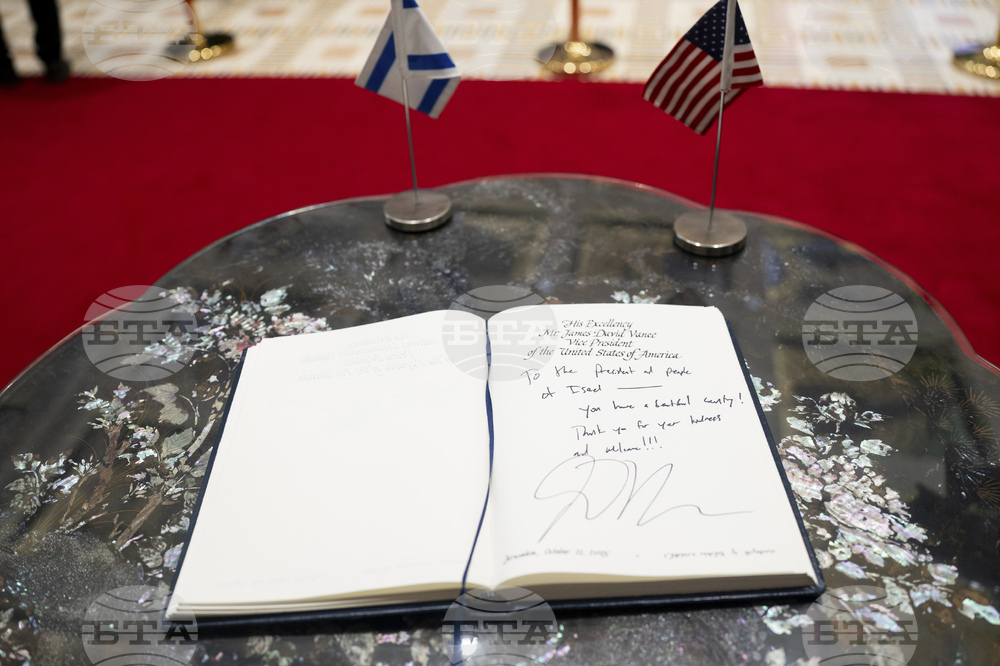 His Excellency
Mr. James David Vance
Vice President
of the United States of America
To the President and people
of Israel
You have a beautiful country!
Thank you for your kindness
and welcome!!!
Jerusalem, October 22, 2025
БТА
БТА
БТА
БТА
БТА
БТА